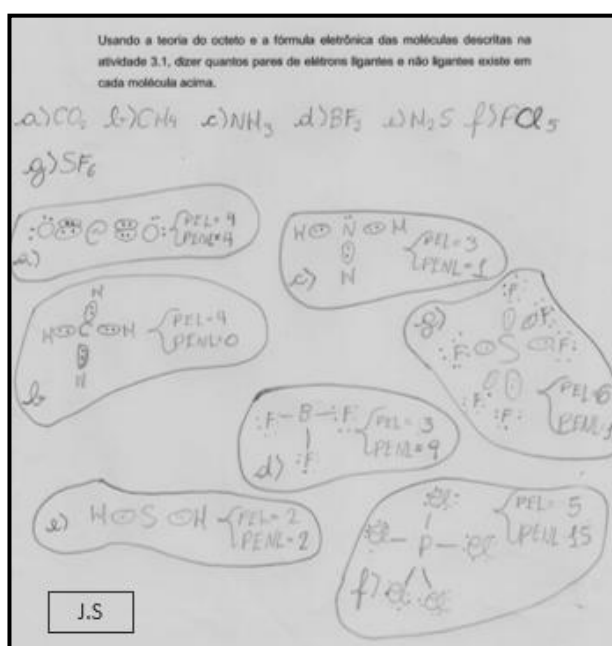 Usando a teoria do octeto e a fórmula eletrônica das moléculas descritas na
atividade 3.1, dizer quantos pares de elétrons ligantes e não ligantes existe em
cada molécula acima.
a) CO₂ b) CH₄ c) NH₃ d) BF₃ e) H₂S f) PCl₅
g) SF₆
:O C O: PEL=4
a) PENL=4
H N H PEL=3
c) H PENL=1
H
H C H PEL=4
PENL=0
b H
g) F
F F
F S F:
F F PEL=6
:F B F: PEL=3
d) F PENL=9
e) H S H PEL=2
PENL=2
Cl PEL=5
Cl P Cl PENL 15
f) Cl Cl
J.S